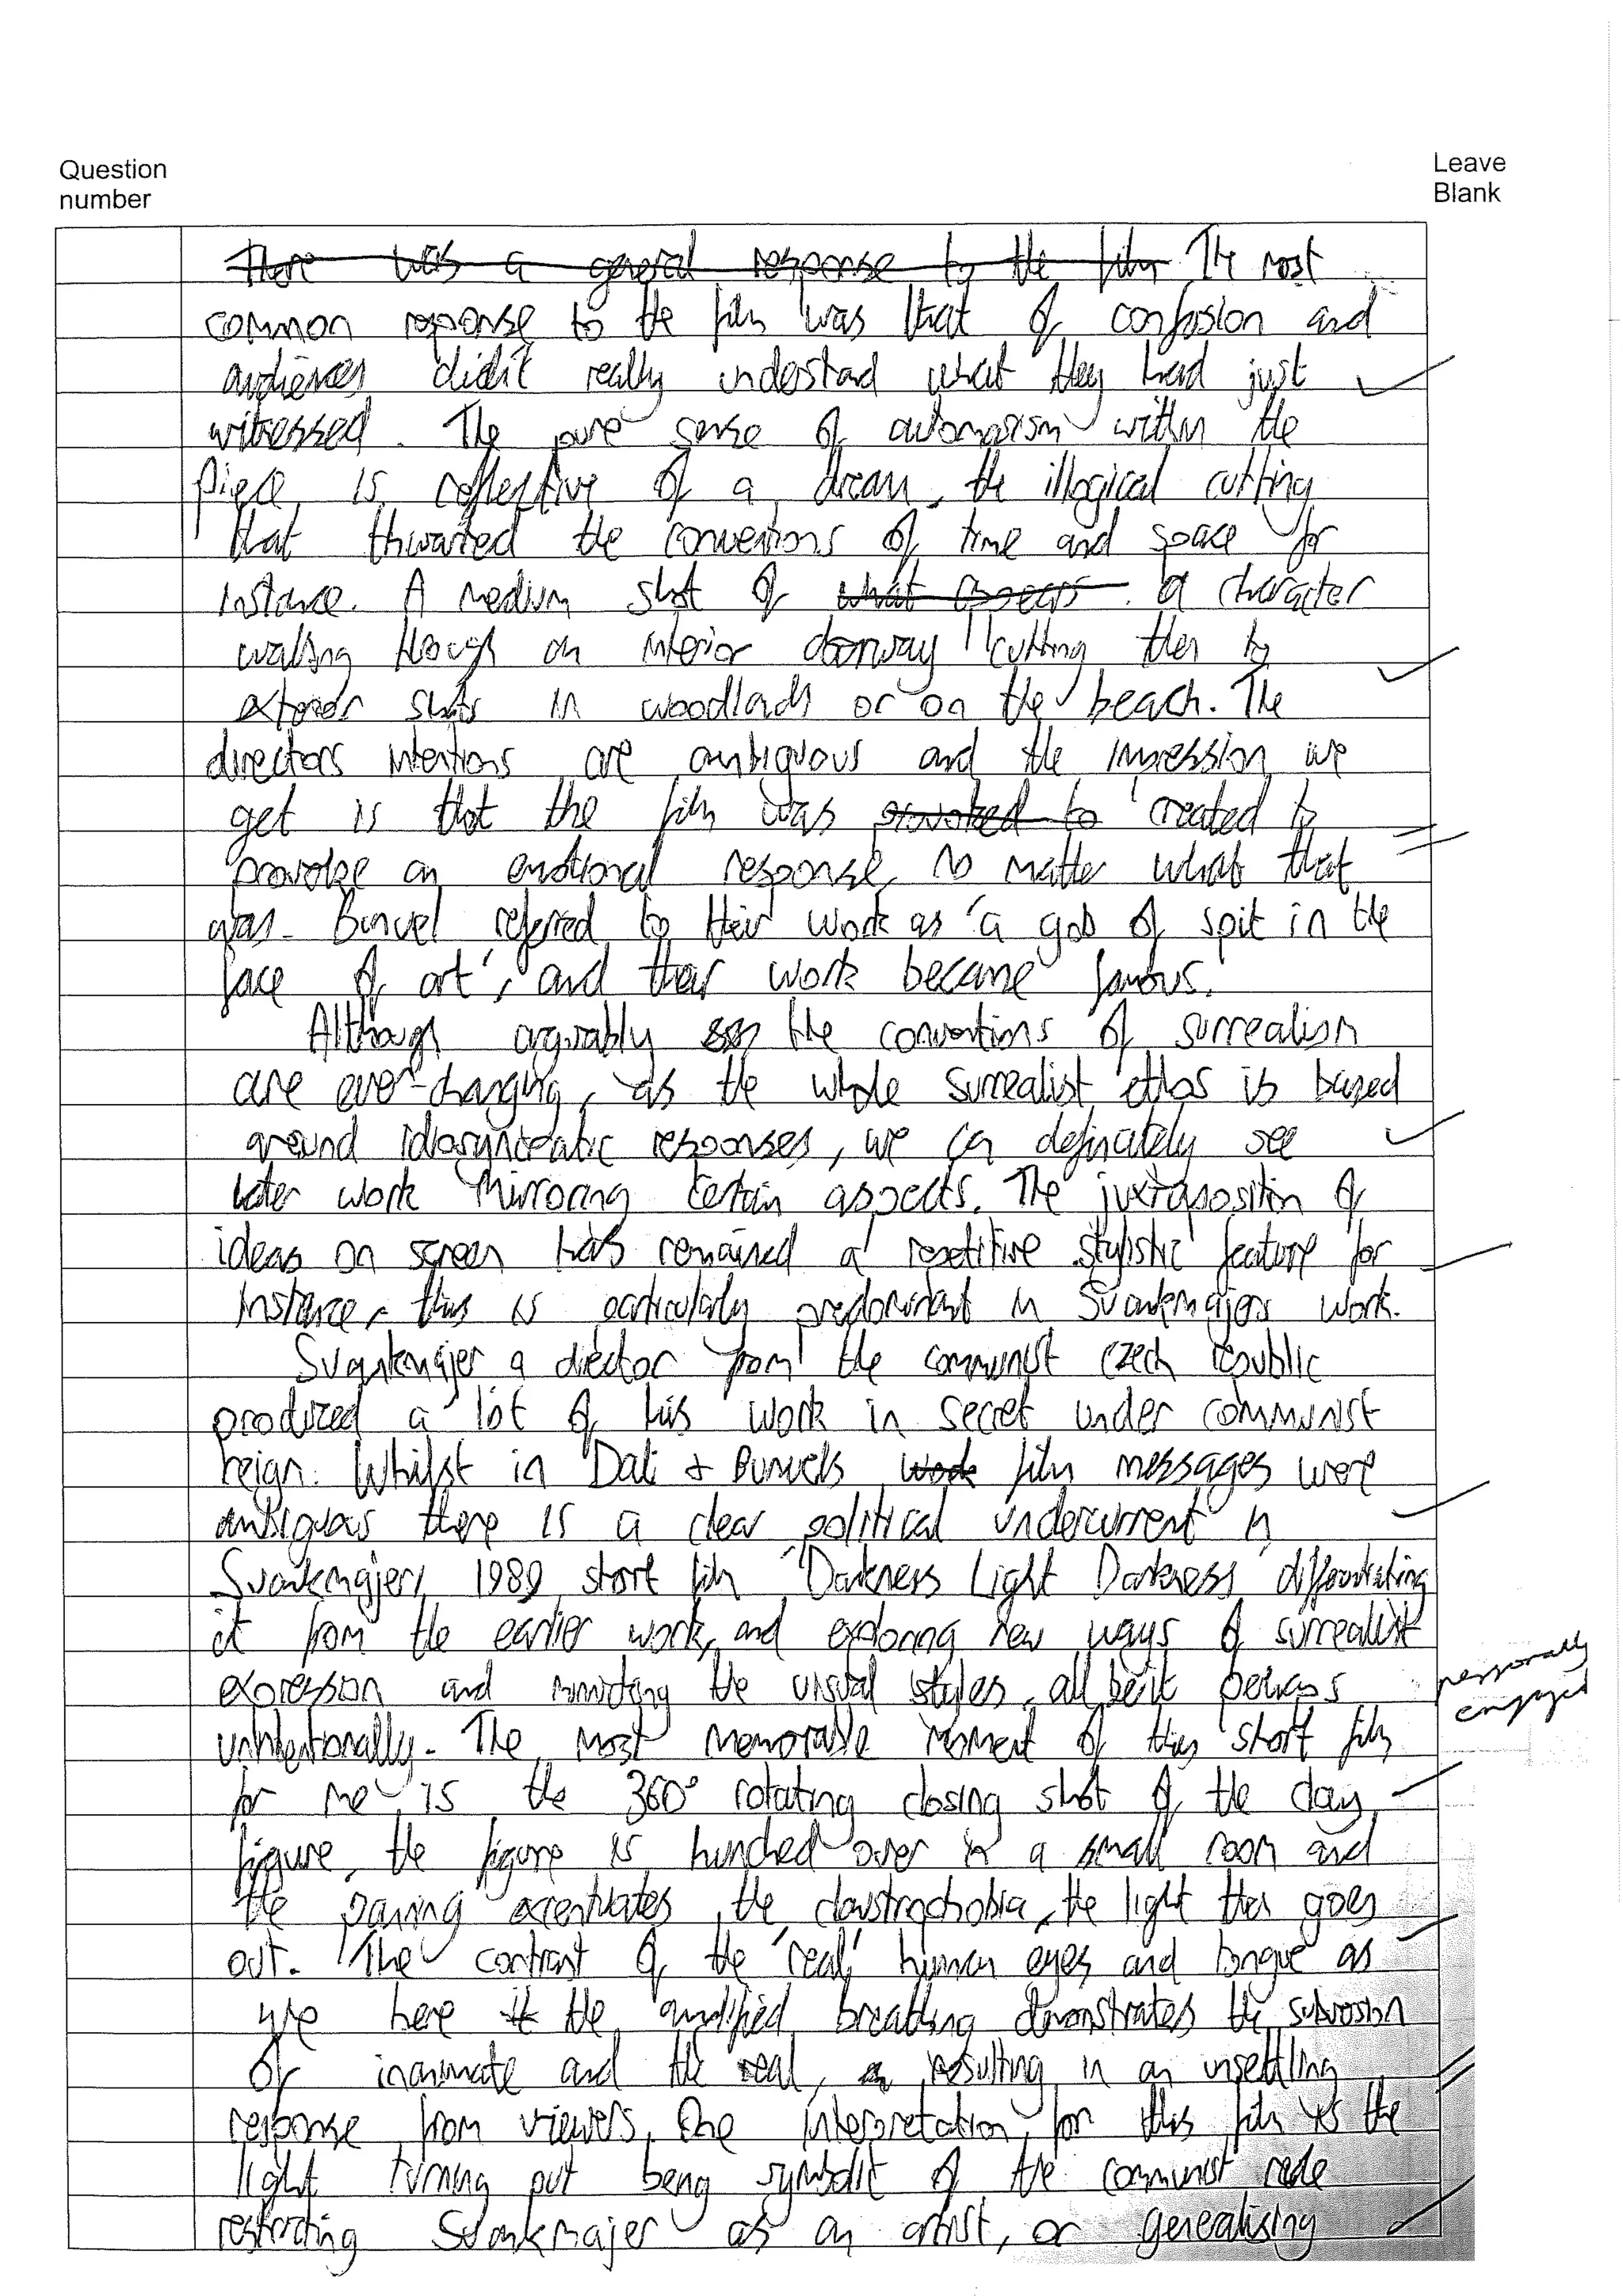 Question
number
Leave
Blank
There was a general response to the film The most
common response to the film was that of confusion and
audiences didn't really understand what they had just
witnessed. The pure sense of automatism within the
piece is reflective of a dream, the illogical cutting
that thwarted the conventions of time and space for
instance. A medium shot of what appears a character
walking through an interior doorway cutting then to
exterior shots in woodlands or on the beach. The
directors intentions are ambiguous and the impression we
get is that the film was provoked to created to
provoke an emotional response, no matter what that
was. Bunuel referred to their work as 'a gob of spit in the
face of art', and their work became famous.
Although arguably the conventions of surrealism
are ever-changing, as the whole surrealist ethos is based
around idiosyncratic responses, we can definately see
later work mirroring certain aspects. The juxtaposition of
ideas on screen has remained a repetitive stylistic feature for
instance, this is particularly predominant in Svankmajers work.
Svankmajer a director from the communist Czech republic
produced a lot of his work in secret under communist
reign. Whilst in Dali + Bunuels work film messages were
ambiguous there is a clear political undercurrent in
Svankmajers 1989 short film 'Darkness Light Darkness' differentiating
it from the earlier work, and exploring new ways of surrealist
expression and mimicking the visual styles, all beit perhaps
unintentionally. The most memorable moment of this short film
for me is the 360° rotating closing shot of the clay
figure, the figure is hunched over in a small room and
the panning accentuates the claustrophobia, the light then goes
out. The contrast of the 'real' human eyes and tongue as
we here the amplified breathing demonstrates the subversion
of inanimate and the real, resulting in an unsettling
response from viewers. One interpretation for this film is the
light turning out being symbolic of the communist rule
restricting Svankmajer as an artist, or generalising
personally
engaged